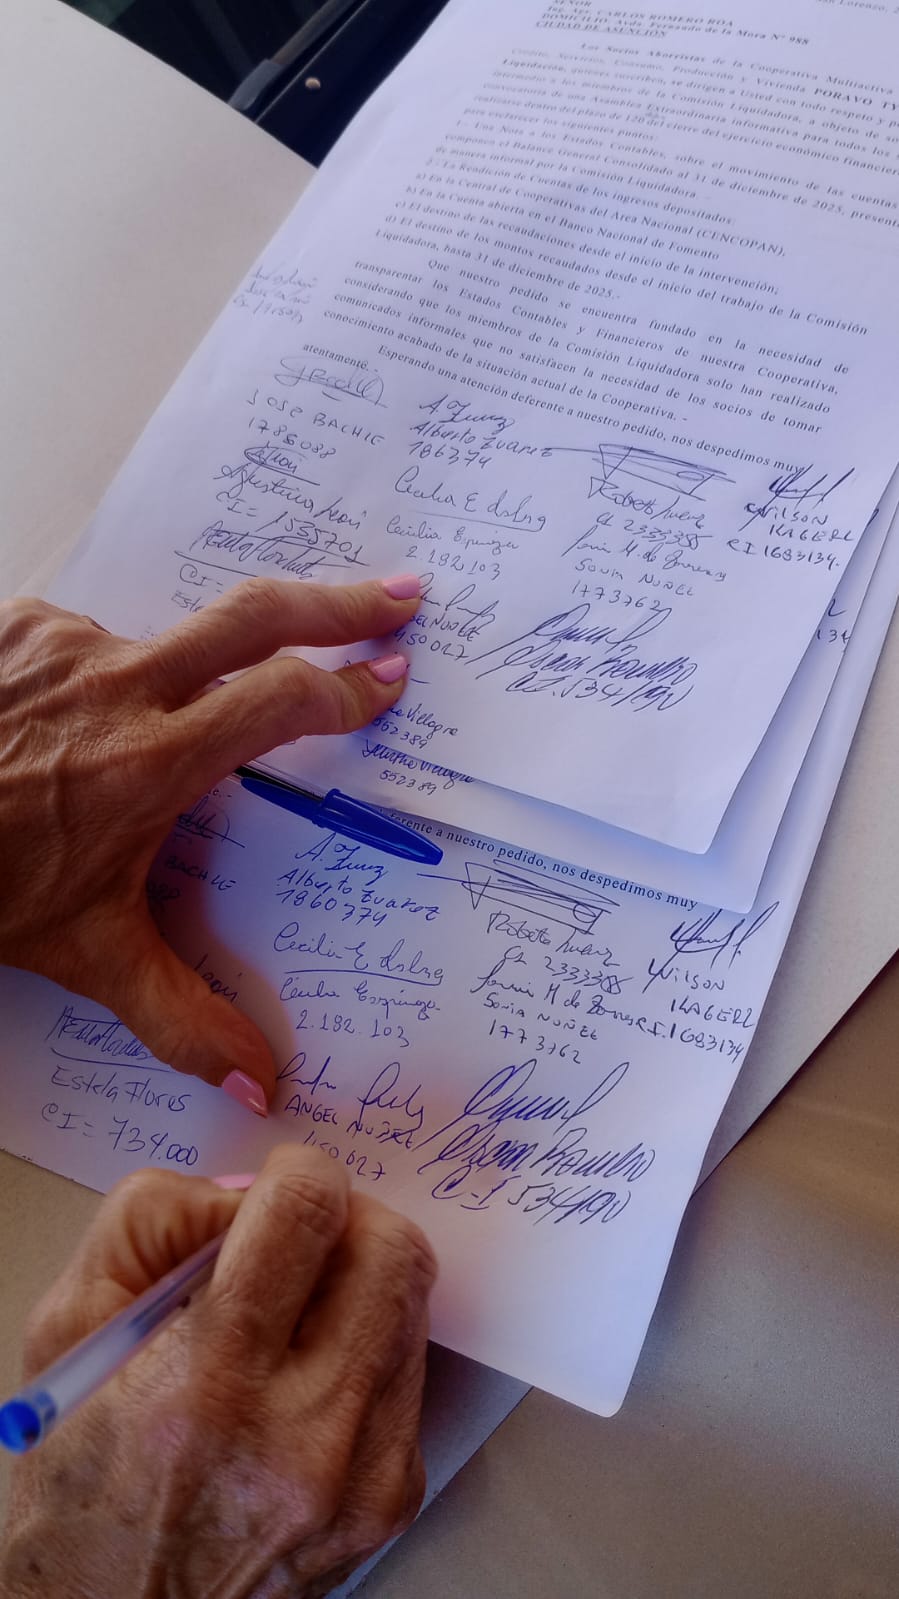 San Lorenzo, 2
SEÑOR
Ing. Agr. CARLOS ROMERO ROA
DOMICILIO: Avda. Fernando de la Mora N° 988
CIUDAD DE ASUNCIÓN
Los Socios Ahorristas de la Cooperativa Multiactiva
Crédito, Servicios, Consumo, Producción y Vivienda PORAVO TY
Liquidación, quienes suscriben, se dirigen a Usted con todo respeto y
informados a los miembros de la Comisión Liquidadora, a objeto de
convocatoria de una Asamblea Extraordinaria informativa para todos los
realizarse dentro del plazo de 120 del cierre del ejercicio económico financiero
para esclarecer los siguientes puntos:
1.- Una Nota a los Estados Contables, sobre el movimiento de las cuentas
componen el Balance General Consolidado al 31 de diciembre de 2025, present
de manera informal por la Comisión Liquidadora
2.- La Rendición de Cuentas de los ingresos depositados:
a) En la Central de Cooperativas del Area Nacional (CENCOPAN),
b) En la Cuenta abierta en el Banco Nacional de Fomento
c) El destino de las recaudaciones desde el inicio de la intervención;
d) El destino de los montos recaudados desde el inicio del trabajo de la Comisión
Liquidadora, hasta 31 de diciembre de 2025.-
Que nuestro pedido se encuentra fundado en la necesidad de
transparentar los Estados Contables y Financieros de nuestra Cooperativa,
considerando que los miembros de la Comisión Liquidadora solo han realizado
comunicados informales que no satisfacen la necesidad de los socios de tomar
conocimiento acabado de la situación actual de la Cooperativa. -
Esperando una atención deferente a nuestro pedido, nos despedimos muy
atentamente.-
JOSE BACHLE
1785088
Agustina León
CI= 1535701
CI=
Este
A. Zuarez
Alberto Zuarez
186374
Cecilia E
Cecilia Espinoza
2.192.103
GEL NUÑEZ
450027
Villagra
552389
Villagra
552389
Roberto Juarez
CI 2333385
SONIA NUÑEZ
1773762
WILSON
KAGERL
CI 1683134.
Oscar Romero
CI. 534190
134
ferente a nuestro pedido, nos despedimos muy
BACHLE
León
Estela Flores
CI= 734.000
A. Zuarez
Alberto Zuarez
1860374
Cecilia E
Cecilia Espinoza
2.192.103
ANGEL NUÑEZ
450027
Roberto Juarez
CI 2333385
SONIA NUÑEZ
1773762
WILSON
KAGERL
CI. 1683134
Oscar Romero
C-I 534190